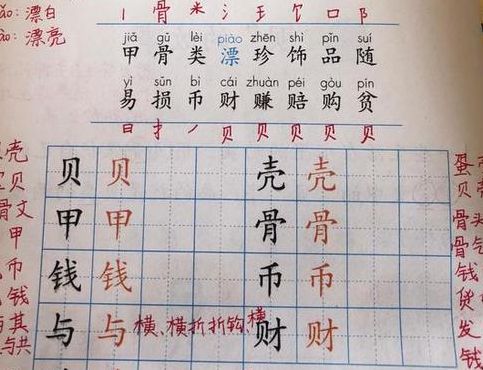 ǎo: 漂白
ǎo: 漂亮
丨 骨 米 氵 王 饣 口 阝
jiǎ gǔ lèi piào zhēn shì pǐn suí
甲 骨 类 漂 珍 饰 品 随
yì sǔn bì cái zhuàn péi gòu pín
易 损 币 财 赚 赔 购 贫
日 扌 丿 贝 贝 贝 贝 贝
壳 贝 贝 壳 壳 蛋
贝 贝
骨文 甲 甲 骨 骨 骨头
甲 骨气
币 钱 钱 币 币 钱
钱
其 与 与 横、横折折钩、横 财 财 发
与共 钱